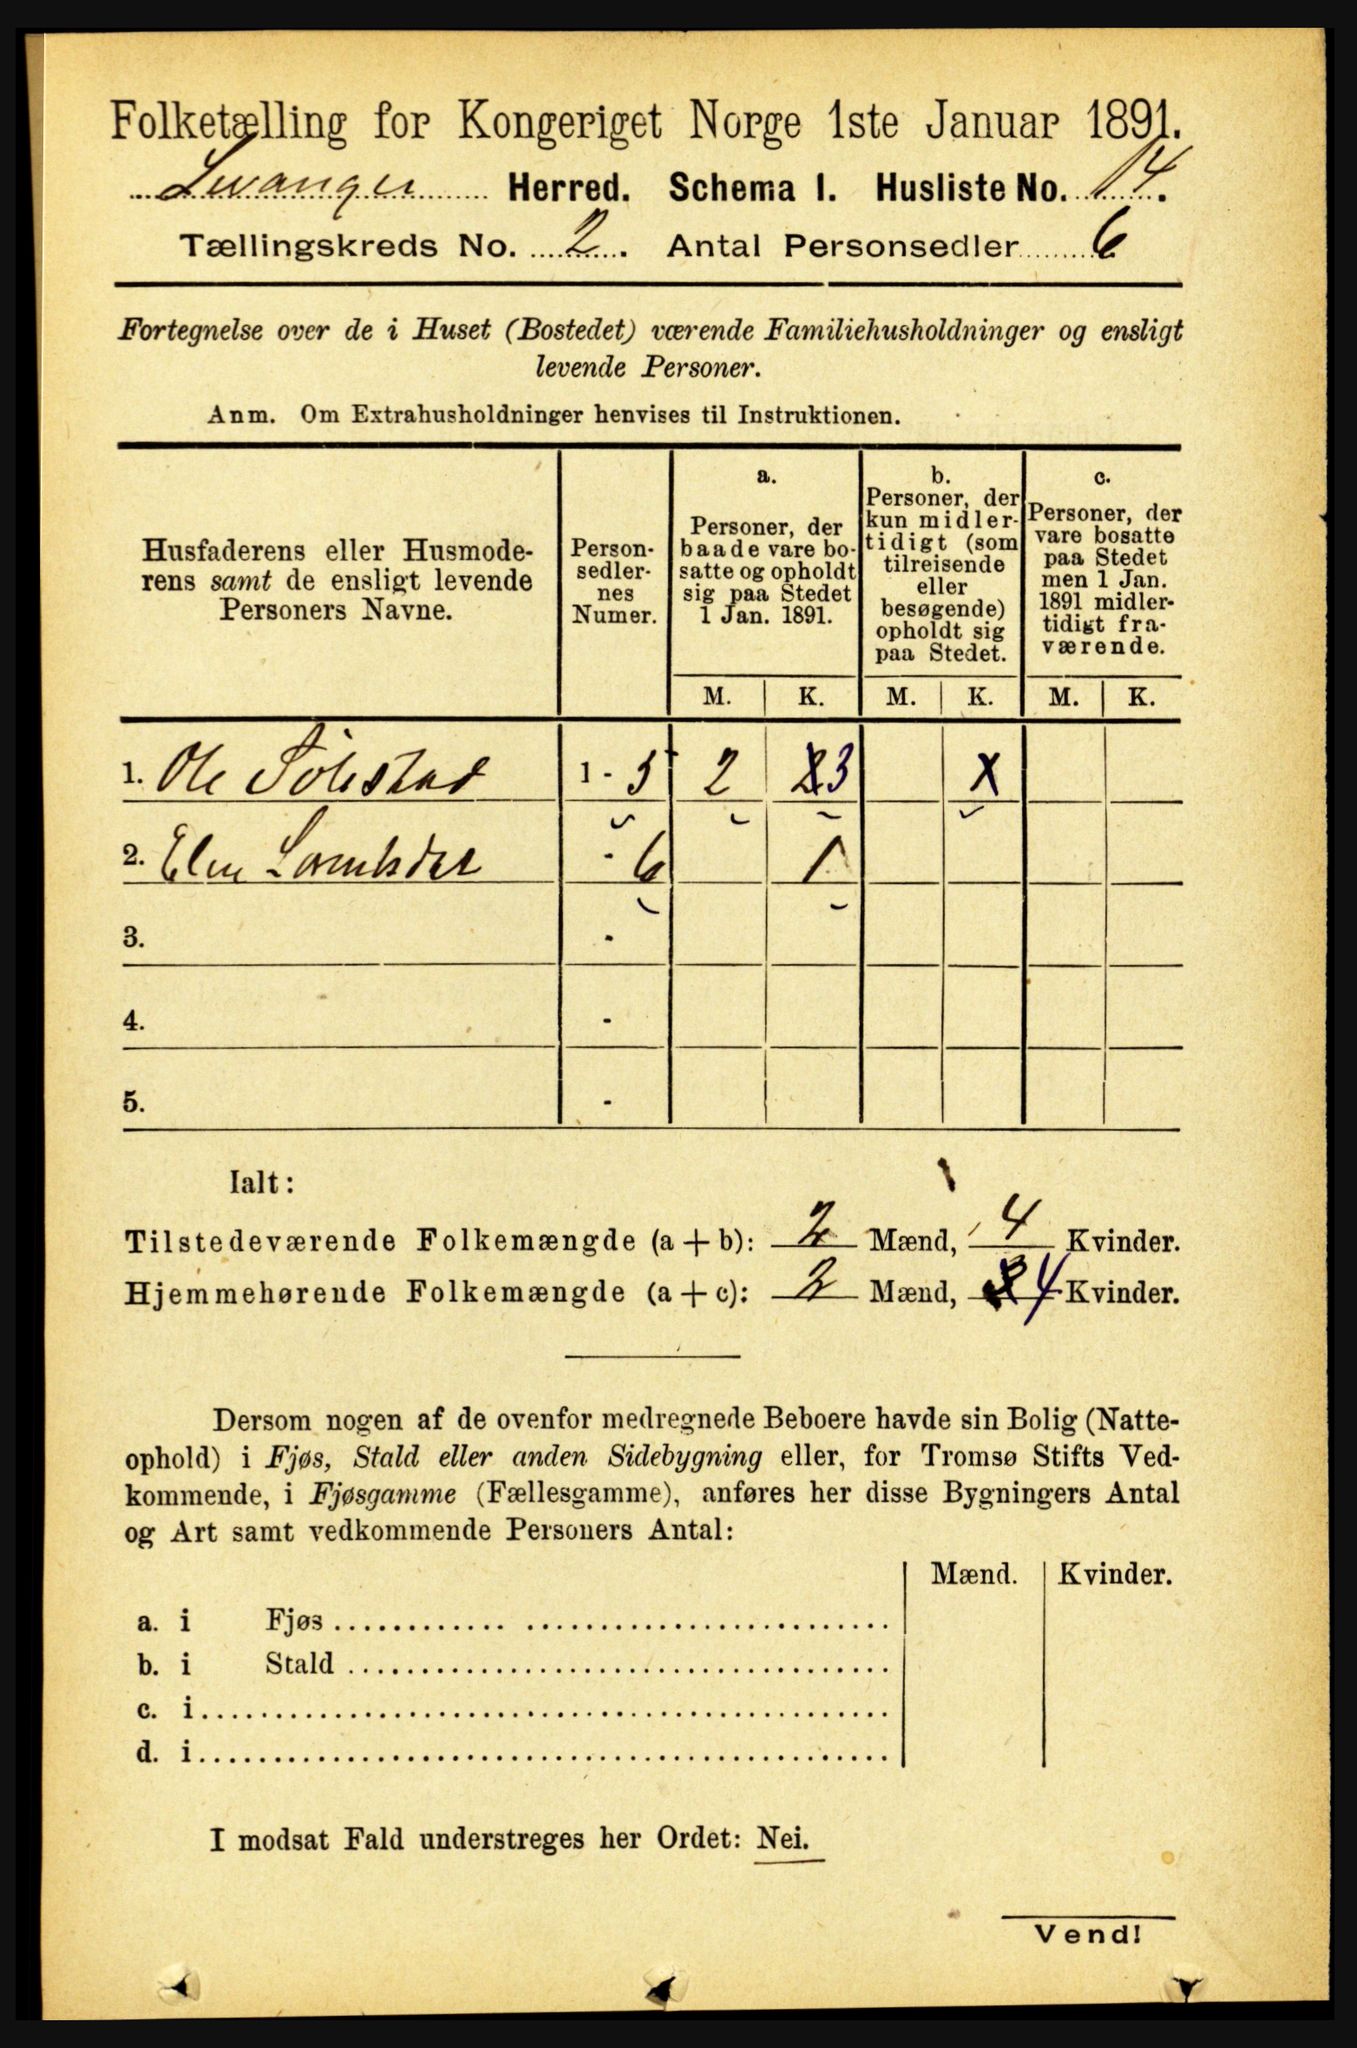 Folketælling for Kongeriget Norge 1ste Januar 1891.
Herred. Schema I. Husliste No. 14.
Tællingskreds No. 2. Antal Personsedler 6
Fortegnelse over de i Huset (Bostedet) værende Familiehusholdninger og ensligt
levende Personer.
Anm. Om Extrahusholdninger henvises til Instruktionen.
Husfaderens eller Husmode-
rens samt de ensligt levende
Personers Navne.
Person-
sedler-
nes
Numer.
a.
Personer, der
baade vare bo-
satte og opholdt
sig paa Stedet
1 Jan. 1891.
b.
Personer, der
kun midler-
tidigt (som
tilreisende
eller
besøgende)
opholdt sig
paa Stedet.
c.
Personer, der
vare bosatte
paa Stedet
men 1 Jan.
1891 midler-
tidigt fra-
værende.
M. K. M. K. M. K.
1. Ole 1 - 5 2 3
2. 6 1
3. -
4. -
5. -
Ialt:
Tilstedeværende Folkemængde (a + b): 2 Mænd, 4 Kvinder.
Hjemmehørende Folkemængde (a + c): 2 Mænd, 4 Kvinder.
Dersom nogen af de ovenfor medregnede Beboere havde sin Bolig (Natte-
ophold) i Fjøs, Stald eller anden Sidebygning eller, for Tromsø Stifts Ved-
kommende, i Fjøsgamme (Fællesgamme), anføres her disse Bygningers Antal
og Art samt vedkommende Personers Antal:
Mænd. Kvinder.
a. i Fjøs
b. i Stald
c. i
d. i
I modsat Fald understreges her Ordet: Nei.
Vend!